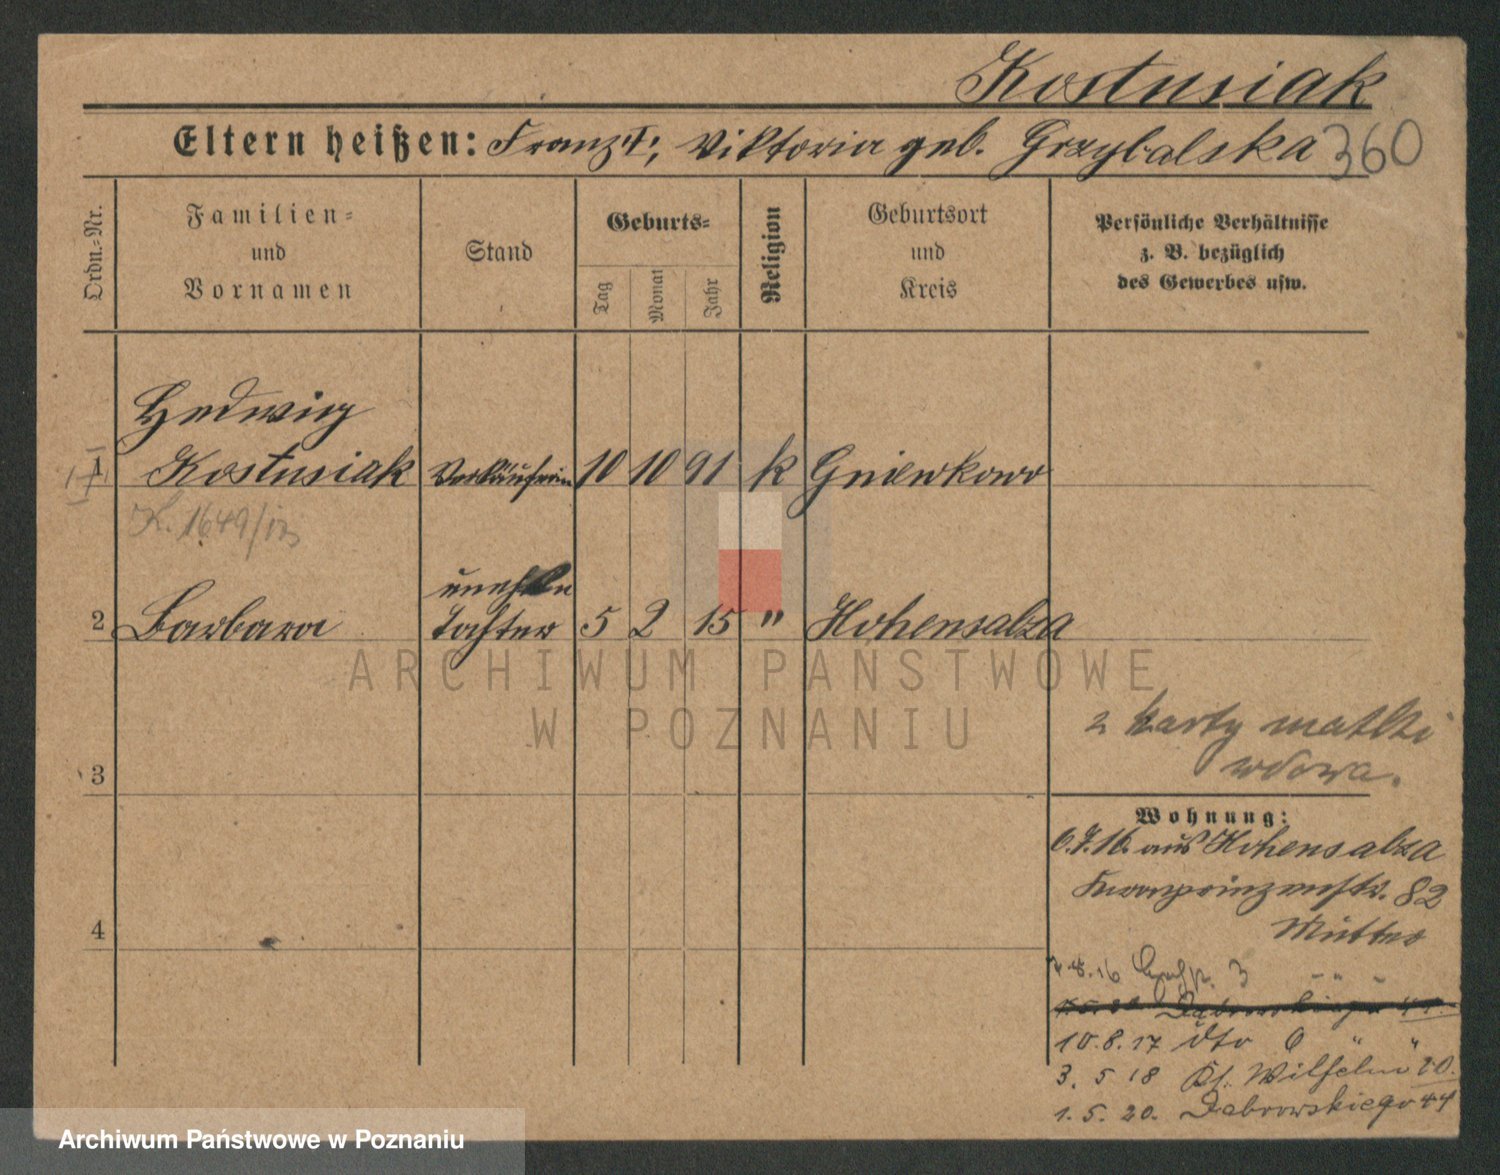 Kostusiak
Eltern heißen: Franz †, Viktoria geb. Grzybalska 360
Ordn.=Nr.
Familien=
und
Vornamen
Stand
Geburts=
Tag
Monat
Jahr
Religion
Geburtsort
und
Kreis
Persönliche Verhältnisse
z. B. bezüglich
des Gewerbes usw.
Hedwig
1 Kostusiak Verkäuferin 10 10 91 k Gniewkowo
K. 1649/
unehln
2 Barbara Tochter 5 2 15 " Hohensalza
z karty matki
wdowa.
3
4
Wohnung:
6.7.16. aus Hohensalza
Kronprinzenstr. 82
Mutter
7.8.16 3 " "
Dąbrowskiego 44.
10.8.17 dto 6 " "
3. 5 18 Kl. Wilhelm 20.
1. 5. 20. Dabrowskiego 44
ARCHIWUM PAŃSTWOWE
W POZNANIU
Archiwum Państwowe w Poznaniu